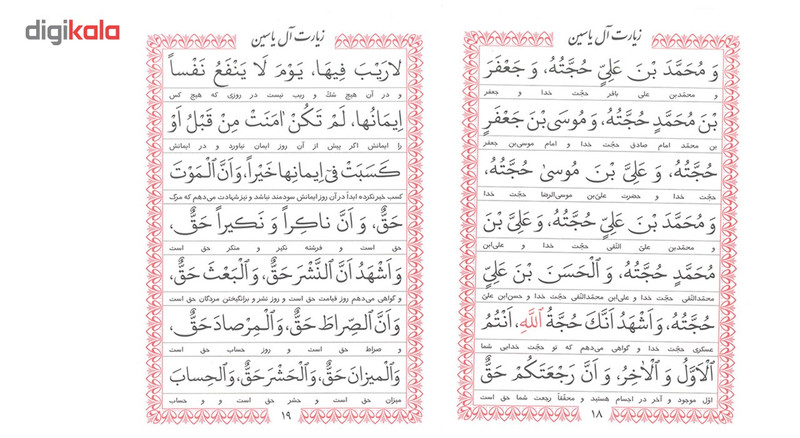 digikala
زیارت آل یاسین
وَ مُحَمَّدَ بْنَ عَلِیٍّ حُجَّتُهُ، وَ جَعْفَرَ
و محمّدبن علی باقر حجّت خدا و جعفر
بْنَ مُحَمَّدٍ حُجَّتُهُ، وَ مُوسَی بْنَ جَعْفَرٍ
بن محمّد امام صادق حجّت خدا و امام موسی‌بن جعفر
حُجَّتُهُ، وَ عَلِیَّ بْنَ مُوسیٰ حُجَّتُهُ،
حجّت خدا و حضرت علی‌بن موسی‌الرضا حجّت خدا
وَ مُحَمَّدَ بْنَ عَلِیٍّ حُجَّتُهُ، وَ عَلِیَّ بْنَ
و محمّدبن علیّ النّقی حجّت خدا و علی‌ابن
مُحَمَّدٍ حُجَّتُهُ، وَ الْحَسَنَ بْنَ عَلِیٍّ
محمّدالنّقی حجّت خدا و علی‌ابن محمّدالنّقی حجّت خدا و حسن‌ابن علیّ
حُجَّتُهُ، وَ اَشْهَدُ اَنَّکَ حُجَّةُ اللّٰهِ، اَنْتُمُ
عسکری حجّت خدا و گواهی می‌دهم که تو حجّت خدایی شما
الْاَوَّلُ وَ الْاٰخِرُ، وَ اَنَّ رَجْعَتَکُمْ حَقٌّ
اوّل موجود و آخر در اجسام هستید و محقّقاً رجعت شما حق است
۱۸
زیارت آل یاسین
لارَیْبَ فِیهَا، یَوْمَ لَا یَنْفَعُ نَفْساً
و در آن هیچ شکّ و ریب نیست در روزی که هیچ کس
اِیمَانُها، لَمْ تَکُنْ اٰمَنَتْ مِنْ قَبْلُ اَوْ
را ایمانش اگر پیش از آن روز ایمان نیاورد و در ایمانش
کَسَبَتْ فِی اِیمانِها خَیْراً، وَ اَنَّ الْمَوْتَ
کسب خیر نکرده ابداً در آن روز ایمانش سودمند نباشد و نیز شهادت می‌دهم که مرگ
حَقٌّ، وَ اَنَّ ناکِراً وَ نَکیراً حَقٌّ،
حق است و فرشته نکیر و منکر حق است
وَ اَشْهَدُ اَنَّ النَّشْرَ حَقٌّ، وَ الْبَعْثَ حَقٌّ،
و گواهی می‌دهم روز قیامت حق است و روز نشر و برانگیختن مردگان حق است
وَ اَنَّ الصِّراطَ حَقٌّ، وَ الْمِرْصادَ حَقٌّ،
و صراط حق است و روز حساب حق است
وَ الْمیزانَ حَقٌّ، وَ الْحَشْرَ حَقٌّ، وَ الْحِسابَ
میزان حق است و حشر حق است و و حساب
۱۹